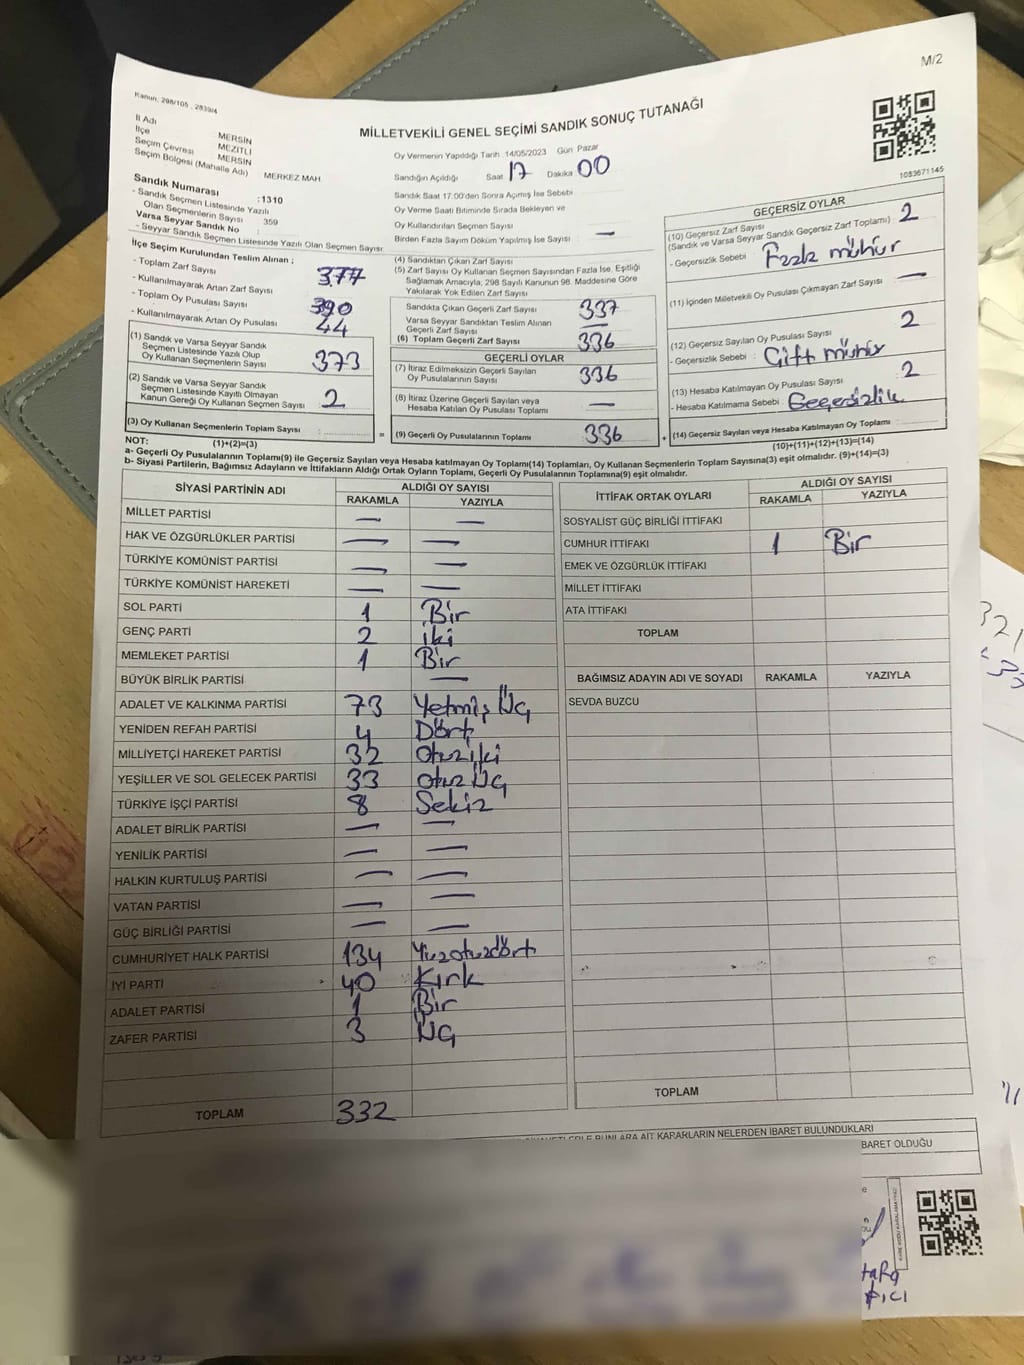 M/2
Kanun, 298/105 , 2839/4
MİLLETVEKİLİ GENEL SEÇİMİ SANDIK SONUÇ TUTANAĞI
İl Adı MERSİN
İlçe MEZİTLİ
Seçim Çevresi MERSİN
Seçim Bölgesi (Mahalle Adı) MERKEZ MAH.
Sandık Numarası :1310
- Sandık Seçmen Listesinde Yazılı
Olan Seçmenlerin Sayısı : 359
Varsa Seyyar Sandık No :
- Seyyar Sandık Seçmen Listesinde Yazılı Olan Seçmen Sayısı:
İlçe Seçim Kurulundan Teslim Alınan ;
- Toplam Zarf Sayısı
- Kullanılmayarak Artan Zarf Sayısı
- Toplam Oy Pusulası Sayısı
- Kullanılmayarak Artan Oy Pusulası 44
(1) Sandık ve Varsa Seyyar Sandık
Seçmen Listesinde Yazılı Olup
Oy Kullanan Seçmenlerin Sayısı 373
(2) Sandık ve Varsa Seyyar Sandık
Seçmen Listesinde Kayıtlı Olmayan
Kanun Gereği Oy Kullanan Seçmen Sayısı 2
(3) Oy Kullanan Seçmenlerin Toplam Sayısı : =
Oy Vermenin Yapıldığı Tarih :14/05/2023 Gün: Pazar
Sandığın Açıldığı Saat 17 Dakika 00
Sandık Saat 17:00'den Sonra Açımış İse Sebebi
Oy Verme Saati Bitiminde Sırada Bekleyen ve
Oy Kullandırılan Seçmen Sayısı :
Birden Fazla Sayım Döküm Yapılmış İse Sayısı : —
(4) Sandıktan Çıkan Zarf Sayısı
(5) Zarf Sayısı Oy Kullanan Seçmen Sayısından Fazla İse, Eşitliği
Sağlamak Amacıyla, 298 Sayılı Kanunun 98. Maddesine Göre
Yakılarak Yok Edilen Zarf Sayısı
Sandıkta Çıkan Geçerli Zarf Sayısı 337
Varsa Seyyar Sandıktan Teslim Alınan
Geçerli Zarf Sayısı —
(6) Toplam Geçerli Zarf Sayısı 336
GEÇERLİ OYLAR
(7) İtiraz Edilmeksizin Geçerli Sayılan
Oy Pusulalarının Sayısı 336
(8) İtiraz Üzerine Geçerli Sayılan veya
Hesaba Katılan Oy Pusulası Toplamı —
(9) Geçerli Oy Pusulalarının Toplamı 336 +
1083671145
GEÇERSİZ OYLAR
(10) Geçersiz Zarf Sayısı 2
(Sandık ve Varsa Seyyar Sandık Geçersiz Zarf Toplamı) :
- Geçersizlik Sebebi : Fazla mühür
(11) İçinden Milletvekili Oy Pusulası Çıkmayan Zarf Sayısı : —
(12) Geçersiz Sayılan Oy Pusulası Sayısı 2
- Geçersizlik Sebebi : Çift mühür
(13) Hesaba Katılmayan Oy Pusulası Sayısı : 2
- Hesaba Katılmama Sebebi : Geçersizlik
(14) Geçersiz Sayılan veya Hesaba Katılmayan Oy Toplamı :
NOT: (1)+(2)=(3) (10)+(11)+(12)+(13)=(14)
a- Geçerli Oy Pusulalarının Toplamı(9) ile Geçersiz Sayılan veya Hesaba katılmayan Oy Toplamı(14) Toplamları, Oy Kullanan Seçmenlerin Toplam Sayısına(3) eşit olmalıdır. (9)+(14)=(3)
b- Siyasi Partilerin, Bağımsız Adayların ve İttifakların Aldığı Ortak Oyların Toplamı, Geçerli Oy Pusulalarının Toplamına(9) eşit olmalıdır.
SİYASİ PARTİNİN ADI ALDIĞI OY SAYISI
RAKAMLA YAZIYLA
MİLLET PARTİSİ — —
HAK VE ÖZGÜRLÜKLER PARTİSİ — —
TÜRKİYE KOMÜNİST PARTİSİ — —
TÜRKİYE KOMÜNİST HAREKETİ — —
SOL PARTİ 1 Bir
GENÇ PARTİ 2 iki
MEMLEKET PARTİSİ 1 Bir
BÜYÜK BİRLİK PARTİSİ —
ADALET VE KALKINMA PARTİSİ 73 Yetmiş Üç
YENİDEN REFAH PARTİSİ 4 Dört
MİLLİYETÇİ HAREKET PARTİSİ 32 otuziki
YEŞİLLER VE SOL GELECEK PARTİSİ 33 otuz Üç
TÜRKİYE İŞÇİ PARTİSİ 8 Sekiz
ADALET BİRLİK PARTİSİ — —
YENİLİK PARTİSİ — —
HALKIN KURTULUŞ PARTİSİ — —
VATAN PARTİSİ — —
GÜÇ BİRLİĞİ PARTİSİ — —
CUMHURİYET HALK PARTİSİ 134 Yüzotuzdört
İYİ PARTİ 40 Kırk
ADALET PARTİSİ 1 Bir
ZAFER PARTİSİ 3 Üç
TOPLAM 332
İTTİFAK ORTAK OYLARI ALDIĞI OY SAYISI
RAKAMLA YAZIYLA
SOSYALİST GÜÇ BİRLİĞİ İTTİFAKI
CUMHUR İTTİFAKI 1 Bir
EMEK VE ÖZGÜRLÜK İTTİFAKI
MİLLET İTTİFAKI
ATA İTTİFAKI
TOPLAM
BAĞIMSIZ ADAYIN ADI VE SOYADI RAKAMLA YAZIYLA
SEVDA BUZCU
TOPLAM
BUNLARA AİT KARARLARIN NELERDEN İBARET BULUNDUKLARI
BARET OLDUĞU